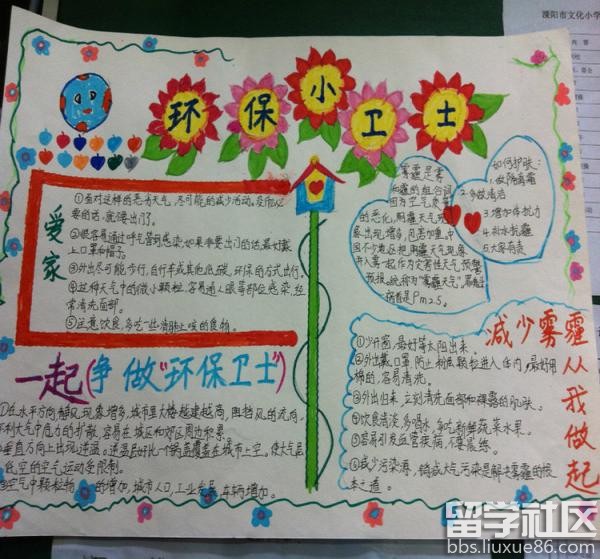 溧阳市文化小学
环保小卫士
爱家
①面对这样的恶劣天气,尽可能的减少活动,没有必
要的话,就不要出门了。
②很容易通过呼气管到感染,如果非要出门的话,最好戴
上口罩和帽子。
③外出尽可能步行,自行车或其他低碳,环保的方式出行。
④这种天气中的微小颗粒,容易通过眼鼻部位感染,经
常清洗面部。
⑤注意饮食,多吃一些清肺止咳的食物。
雾霾是雾
和霾的组合词
因为空气质量
的恶化,阴霾天气现
象出现增多,危害加重,中
国不少地区把阴霾天气现象
并入雾一起作为灾害性天气预警
预报,统称为“雾霾天气”,
PM2.5。
如何护肤:
1.做隔离霜
2.多做清洁
3.增加体抗力
4.补水抗霾
5.大面有责
减少雾霾从我做起
①少开窗,最好等太阳出来。
②外出戴口罩,防止粉尘颗粒进入体内,最好用
棉的,容易清洗。
③外出归来,立刻清洗面部和裸露的肌肤。
④饮食清淡,多喝水,多吃新鲜蔬菜水果。
⑤容易引发血管疾病,不要晨练。
⑥减少污染源,销减大气污染是解决雾霾的根
本之道。
一起(争做“环保卫士”)
①在水平方向静风现象增多,城市里大楼越建越高,阻挡风的流向,
不利大气中危力的扩散,容易在城区和郊区周边积累。
垂直方向上出现逆温。逆温层好比一个锅盖覆盖在城市上空,使大气层
低空的空气运动受限制。
③空气中颗粒物的增加,城市人口,工业发展,车辆增加。
留学社区
bbs.liuxue86.com